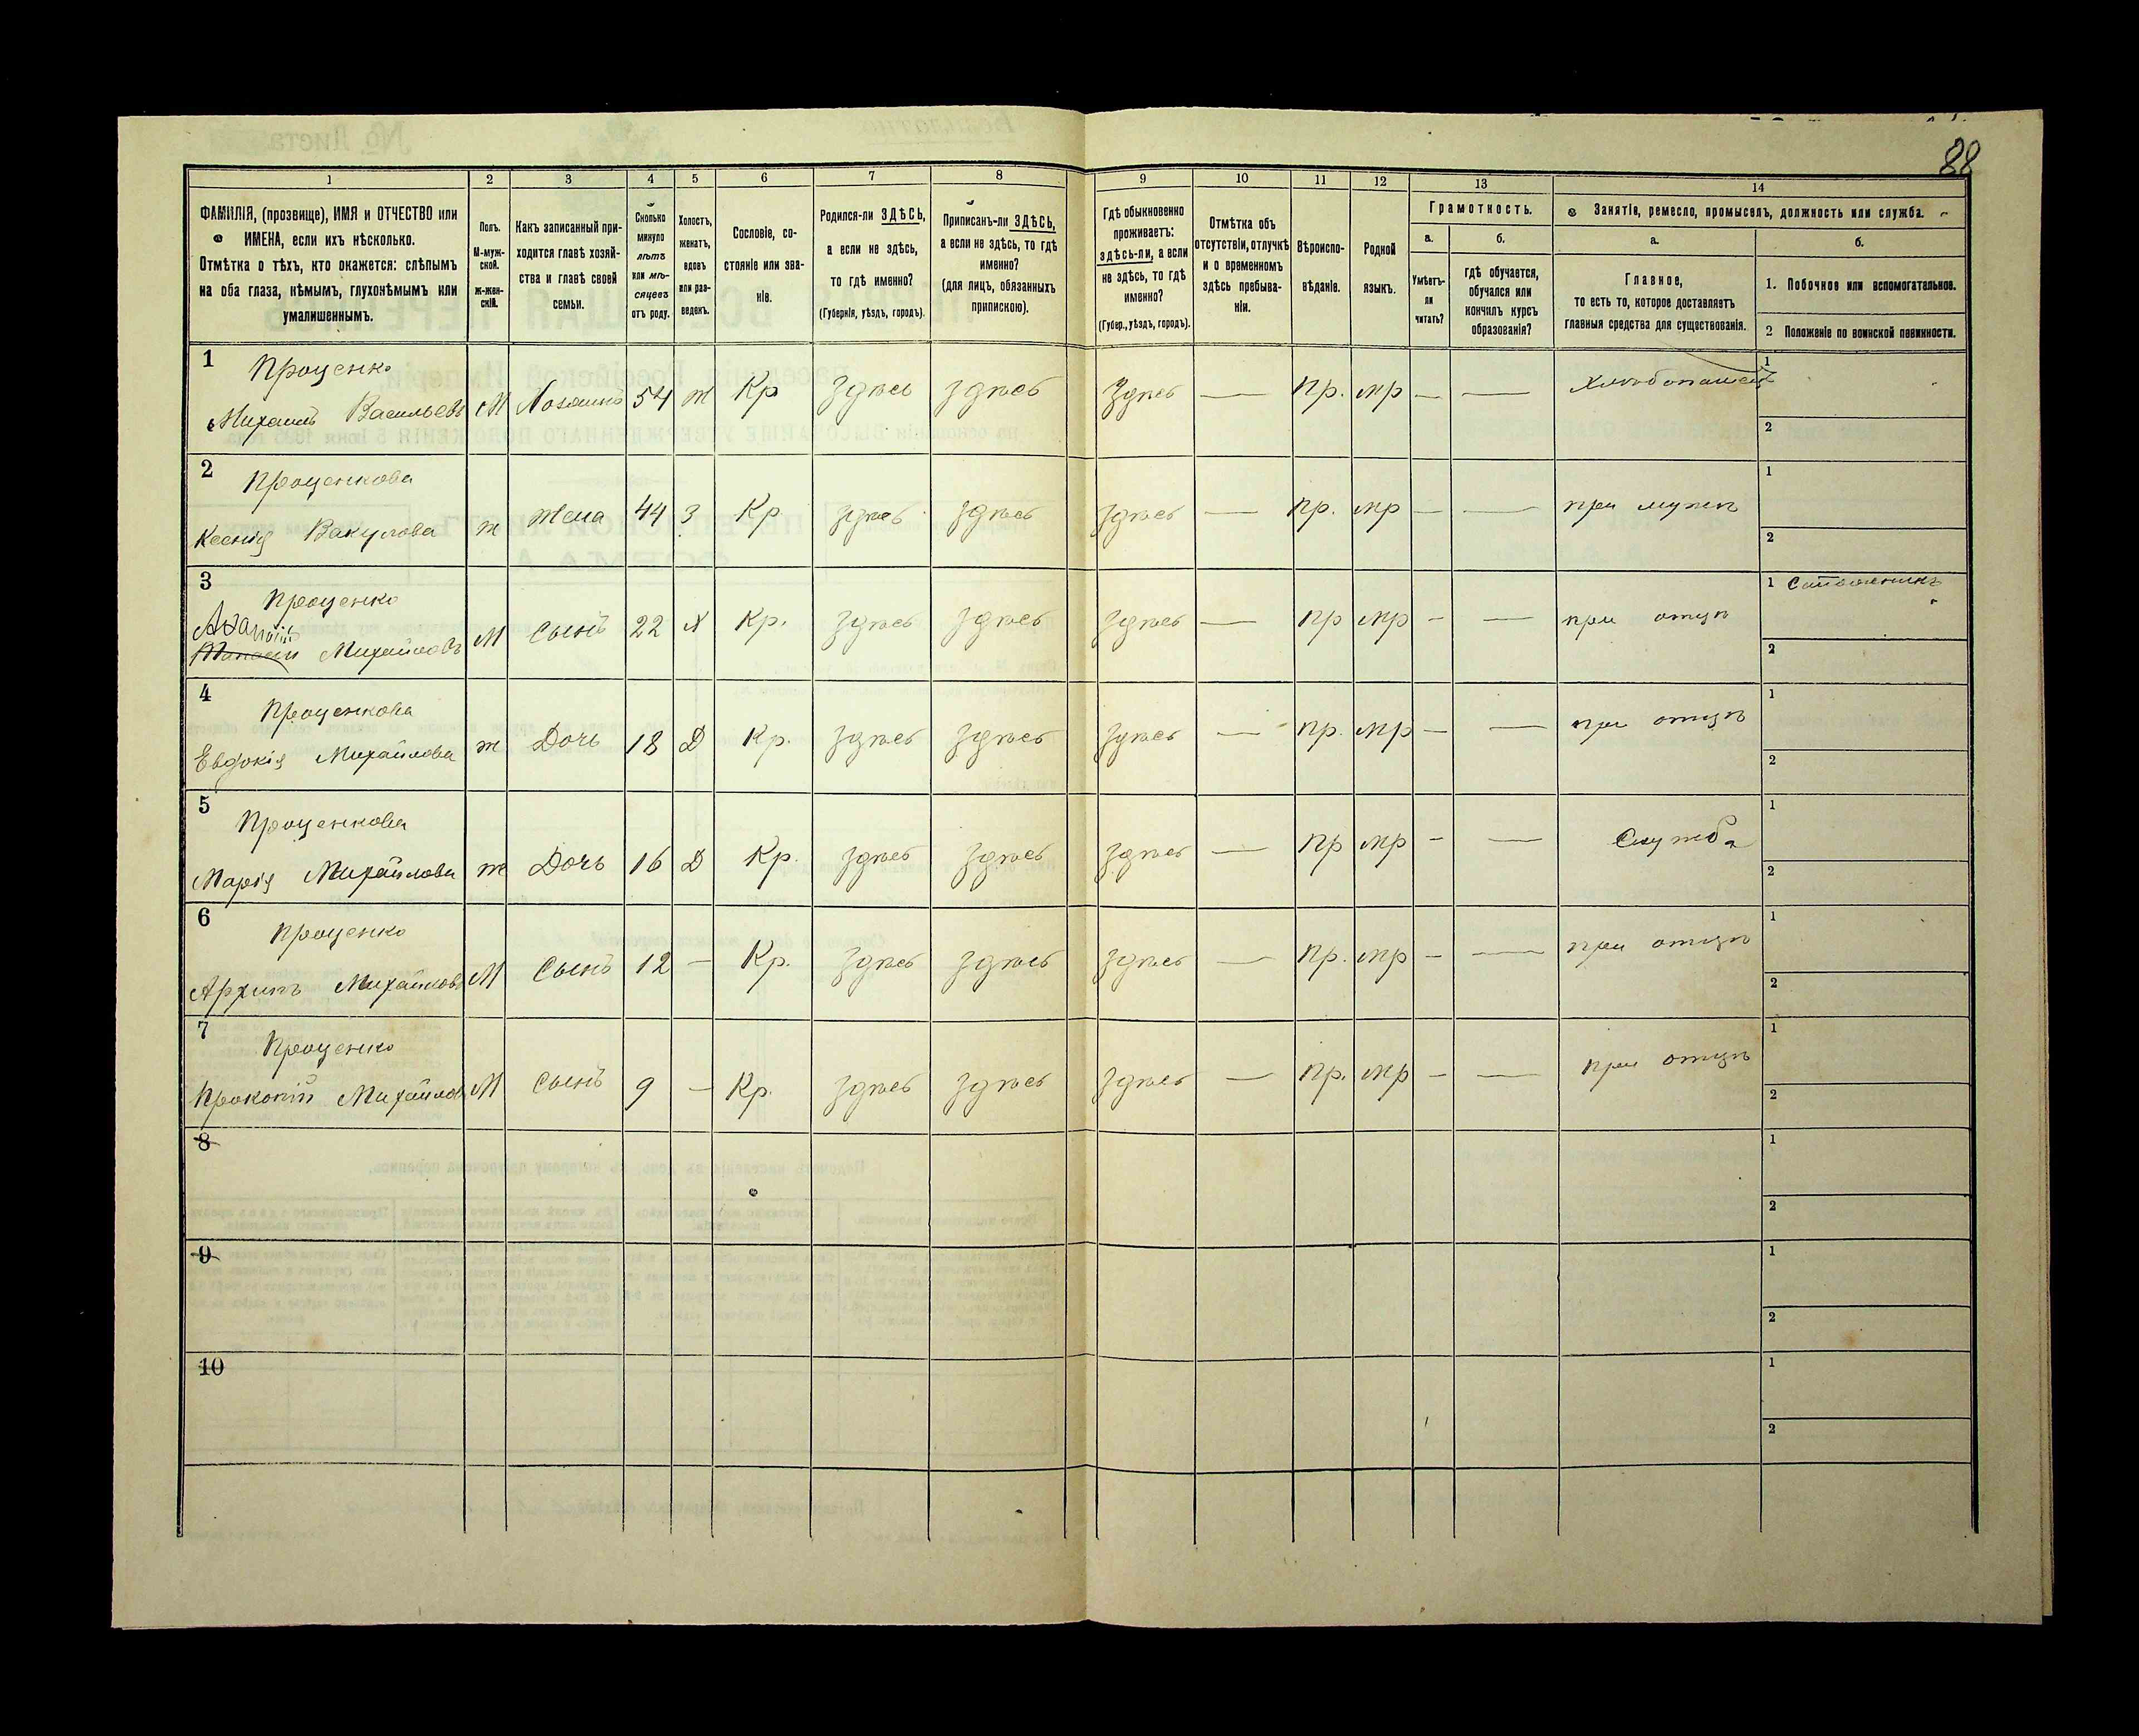 88
1 2 3 4 5 6 7 8 9 10 11 12 13 14
ФАМИЛІЯ, (прозвище), ИМЯ и ОТЧЕСТВО или
ИМЕНА, если ихъ нѣсколько.
Отмѣтка о тѣхъ, кто окажется: слѣпымъ
на оба глаза, нѣмымъ, глухонѣмымъ или
умалишеннымъ.
Полъ.
М-муж-
ской.
ж-жен-
скій.
Какъ записанный при-
ходится главѣ хозяй-
ства и главѣ своей
семьи.
Сколько
минуло
лѣтъ
или мѣ-
сяцевъ
отъ роду.
Холостъ,
женатъ,
вдовъ
или раз-
веденъ.
Сословіе, со-
стояніе или зва-
ніе.
Родился-ли ЗДѢСЬ,
а если не здѣсь,
то гдѣ именно?
(Губернія, уѣздъ, городъ).
Приписанъ-ли ЗДѢСЬ,
а если не здѣсь, то гдѣ
именно?
(для лицъ, обязанныхъ
припискою).
Гдѣ обыкновенно
проживаетъ:
здѣсь-ли, а если
не здѣсь, то гдѣ
именно?
(Губер., уѣздъ, городъ).
Отмѣтка объ
отсутствіи, отлучкѣ
и о временномъ
здѣсь пребыва-
ніи.
Вѣроиспо-
вѣданіе.
Родной
языкъ.
Грамотность.
а.
Умѣетъ-
ли
читать?
б.
гдѣ обучается,
обучался или
кончилъ курсъ
образованія?
Занятіе, ремесло, промыселъ, должность или служба.
а.
Главное,
то есть то, которое доставляетъ
главныя средства для существованія.
б.
1. Побочное или вспомогательное.
2 Положеніе по воинской повинности.
1 Проценко
Михаилъ Васильевъ М Хозяинъ 54 ж Кр здѣсь здѣсь здѣсь — Пр. мр — — Хлѣбопашецъ 1
2
2 Проценкова
Ксенія Вакулова ж жена 44 З Кр здѣсь здѣсь здѣсь — Пр. мр — — при мужѣ 1
2
3 Проценко
Афанасій
Михайловъ М Сынъ 22 Х Кр. здѣсь здѣсь здѣсь — Пр мр — — при отцѣ 1
2
4 Проценкова
Евдокія Михайлова ж Дочь 18 Д Кр. здѣсь здѣсь здѣсь — Пр. мр — — при отцѣ 1
2
5 Проценкова
Марія Михайлова ж Дочь 16 Д Кр. здѣсь здѣсь здѣсь — Пр мр — — Служба 1
2
6 Проценко
Архипъ Михайловъ М Сынъ 12 — Кр. здѣсь здѣсь здѣсь — Пр. мр — — при отцѣ 1
2
7 Проценко
Прокопій Михайловъ М Сынъ 9 — Кр. здѣсь здѣсь здѣсь — Пр. мр — — при отцѣ 1
2
8 1
2
9 1
2
10 1
2